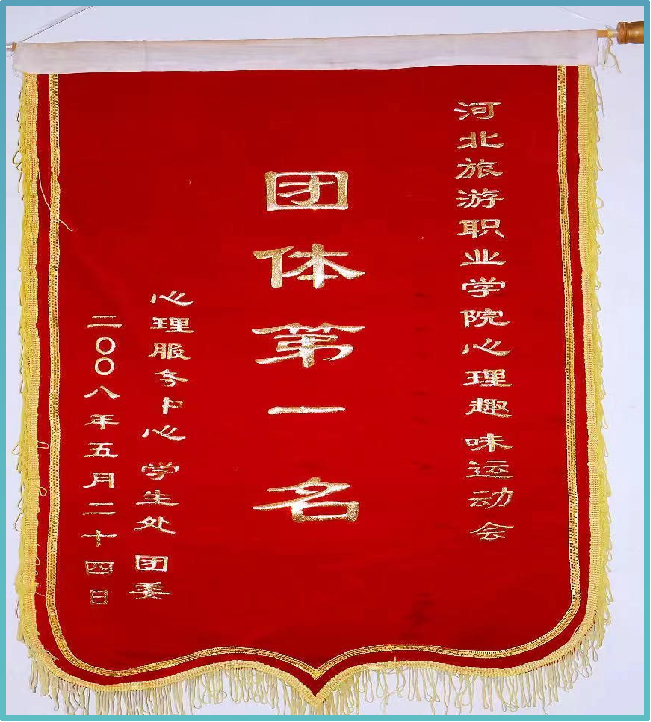 河北旅游职业学院心理趣味运动会
团体第一名
心理服务中心 学生处 团委
二〇〇八年五月二十四日